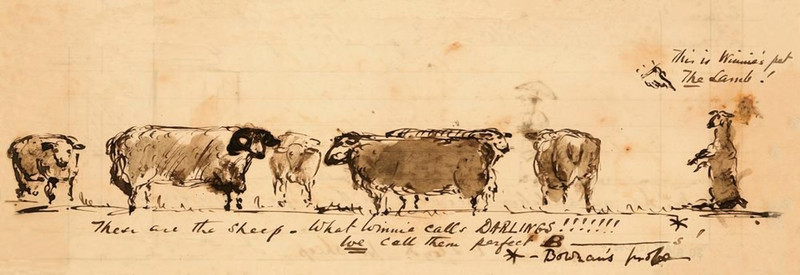 This is Winnie's pet
The Lamb!
These are the sheep - What Winnie calls DARLINGS!!!!!!!
We call them perfect B——————s!
* - Bowran's